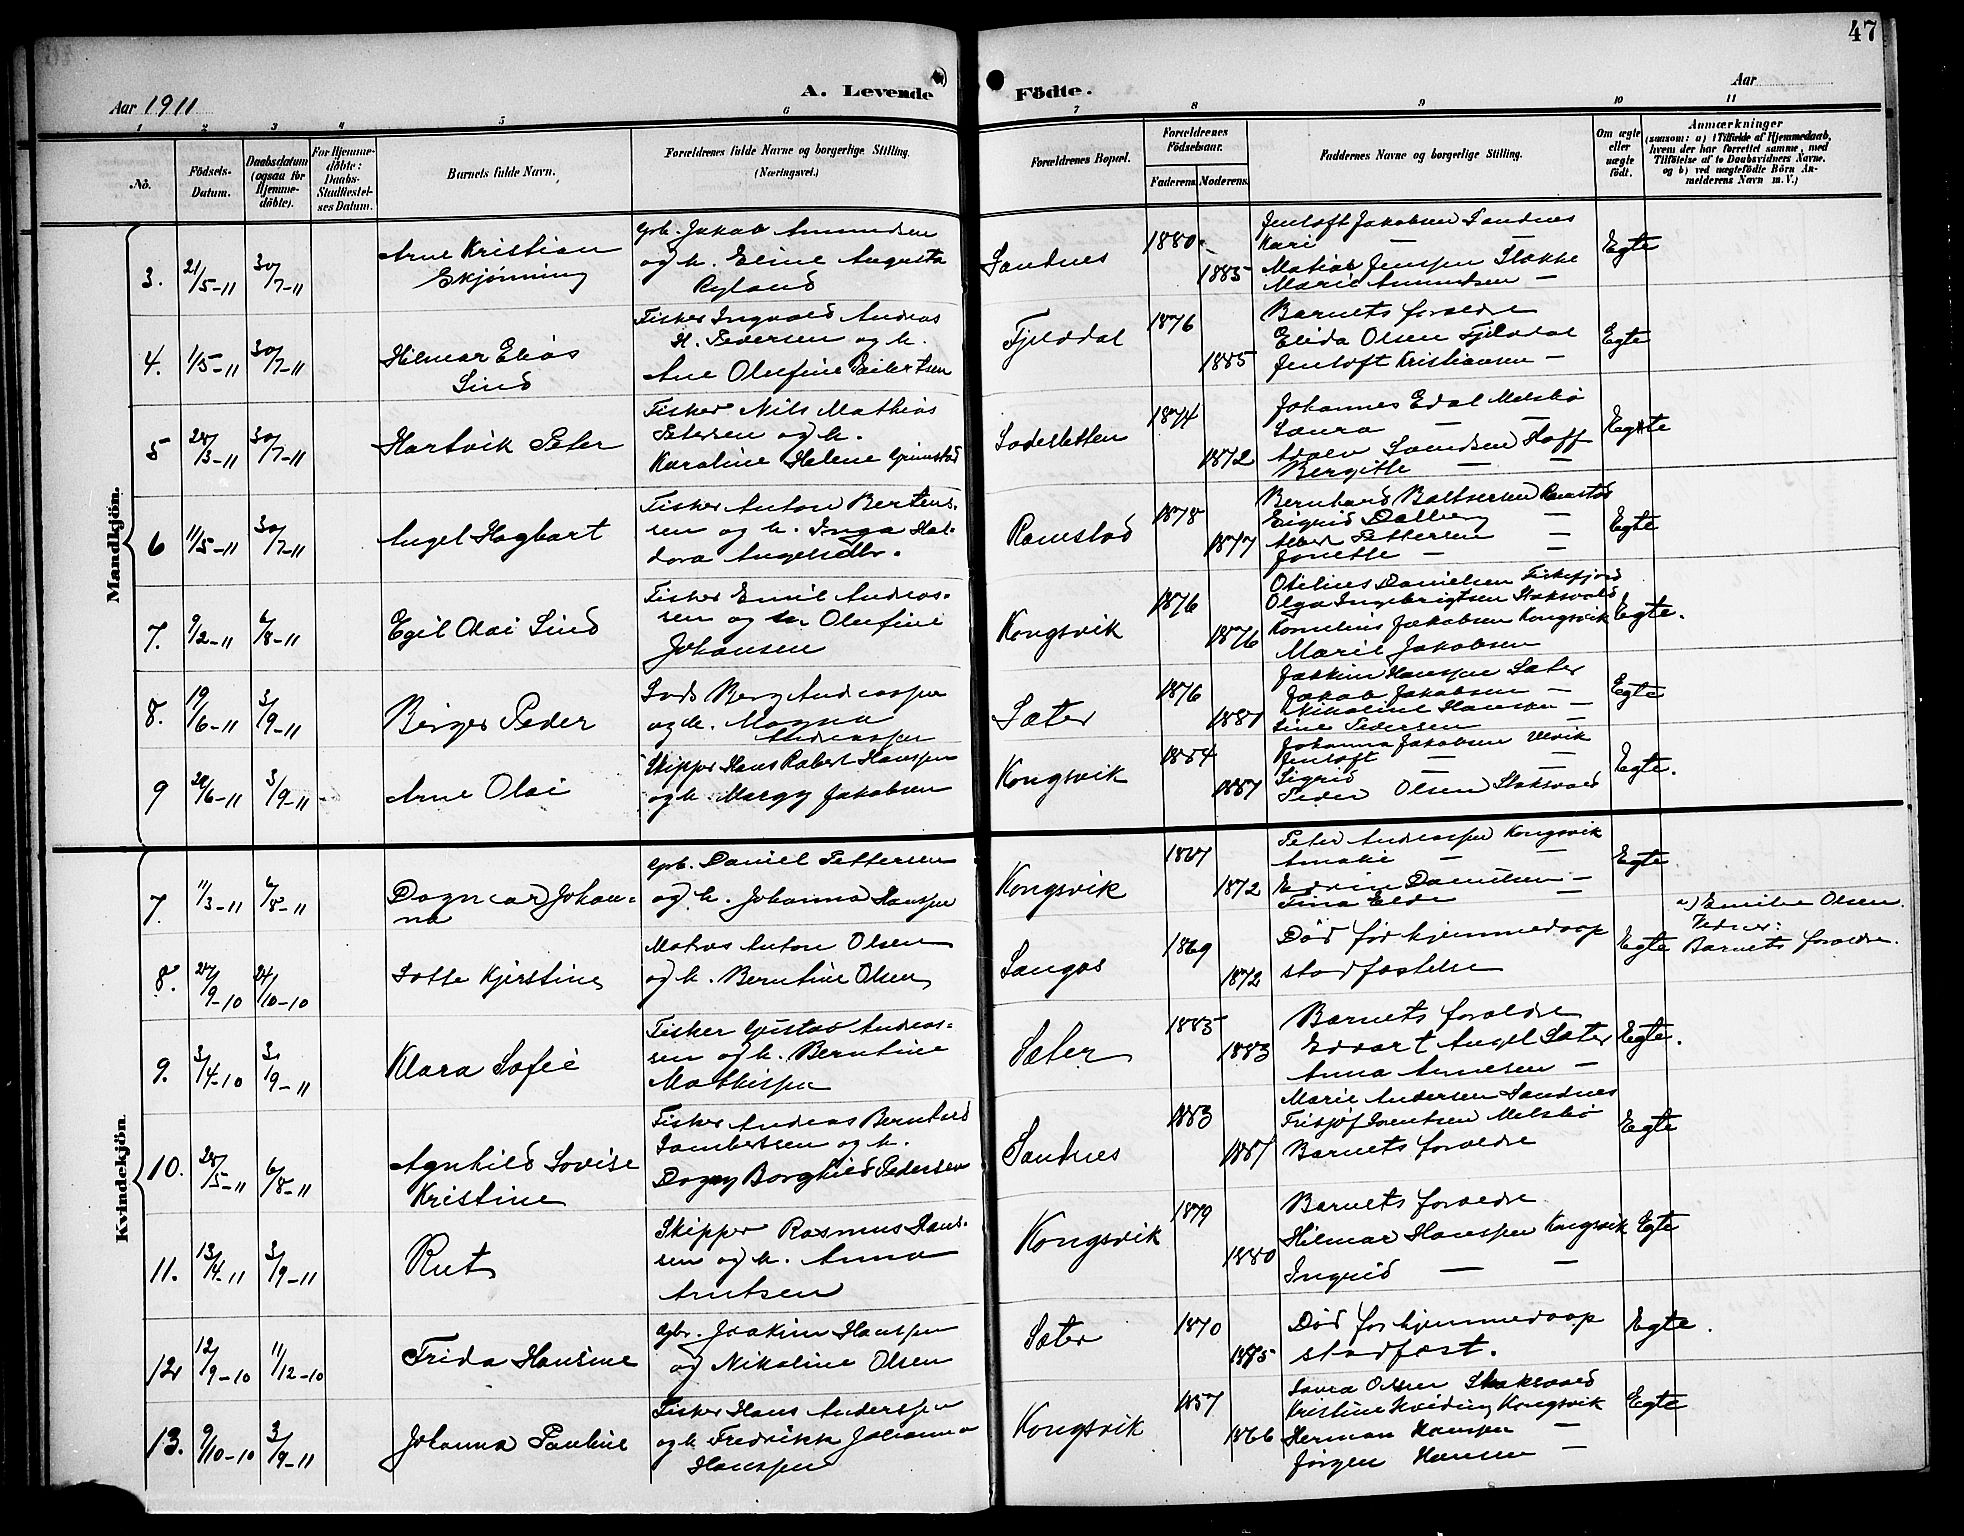 47
Aar 1911
A. Levende
Födte.
Aar
1 2 3 4 5 6 7 8 9 10 11
No.
Födsels-
Datum.
Daabsdatum
(ogsaa for
Hjemme-
döbte).
For Hjemme-
döbte:
Daabs-
Stadfæstel-
ses Datum.
Barnets fulde Navn.
Forældrenes fulde Navne og borgerlige Stilling.
(Næringsvei.)
Forældrenes Bopæl.
Forældrenes
Födselsaar.
Faderens.
Moderens.
Faddernes Navne og borgerlige Stilling.
Om ægte
eller
uægte
födt.
Anmærkninger
(saasom: a) i Tilfælde af Hjemmedaab,
hvem der har forrettet samme, med
Tilföielse af to Daabsvidners Navne,
og b) ved uægtefödte Börn An-
melderens Navn m. V.)
Mandkjön.
3. 21/5-11 30/7-11
Arne Kristian
Skjönning
Grb. Jakob Amundsen
og h. Eline Augusta
Ryland
Sandnes
1880
1885
Jentoft Jakobsen Sandnes
Kari — —
Mathias Jensen Stokke
Marie Amundsen —
Egte
4. 1/5-11 30/7-11
Hilmar Elias
Lind
Fisker Ingvald Andreas
H. Pedersen og h.
Ane Olufine
Fjeldal
1876
1885
Barnets forældre
Elida Olsen Fjeldal
Jentoft Kristiansen —
Egte
5 28/3-11 30/7-11
Hartvik Peter
Fisker Nils Mathias
Petersen og h.
Karoline Helene Grimstad
Ladesletten
1874
1872
Johannes Edal Melsbö
Laura — —
Hoff
Bergitte — —
Egte
6 11/5-11 30/7-11
Angel Hagbart
Fisker Anton Bertens-
sen og h. Inga Hal-
dora Angelsdtr.
Ramstad
1878
1877
Bernhard Baltsersen Ramstad
Sigrid Dalberg —
Albert Pettersen —
Jonette — —
Egte
7. 9/2-11 6/8-11
Egil Olai Lind
Fisker Emil Andreas-
sen og h. Olufine
Johansen
Kongsvik
1876
1876
Otelius Danielsen Fiskefjord
Olga Ingebrigtsen Stoksvold
Kornelius Jakobsen Kongsvik
Marie Jakobsen
Egte.
8. 19/6-11 3/9-11
Birger Peder
Berg Andreassen
og h. Magna
Andreassen
Sæter
1876
1887
Joakim Hanssen Sæter
Jakob Jakobsen —
Nikoline Hansen —
Line Pedersen —
Egte
9 20/6-11 3/9-11
Arne Olai
Skipper Hans Robert Hanssen
og h. Margy Jakobsen
Kongsvik
1884
1887
Johanna Jakobsen Ulvik
Jentoft — —
Sigrid — —
Peder Olsen Stoksvold
Egte.
Kvindekjön.
7. 11/3-11 6/8-11
Dagmar Johan-
na
Grb. Daniel Pettersen
og h. Johanna Hanssen
Kongsvik
1867
1872
Peter Andreassen Kongsvik
Amalie — —
Edvin Danielsen —
Tina Elde —
Egte
8. 27/9-10 24/10-10
Lotte Kjerstine
Matros Anton Olsen
og h. Berntine Olsen
Sangas
1869
1872
Död för hjemmedaap
stadfæstelse
Egte
a) Emilie Olsen.
Vidner:
Barnets forældre.
9. 3/4-10 3/9-11
Klara Sofie
Fisker Gustav Andreas-
sen og h. Berntine
Mathissen
Sæter
1885
1883
Barnets forældre
Edvart Angel Sæter
Anna Arnesen —
Egte.
10. 28/5-11 6/8-11
Agnhild Lovise
Kristine
Fisker Andreas Bernhard
Lambertsen og h.
Dagny Borghild Pedersen
Sandnes
1883
1887
Marie Andersen Sandnes
Fritjof Lorentsen Melsbö
Barnets forældre
Egte
11. 13/4-11 3/9-11
Rut
Skipper Rasmus Hans-
sen og h. Anna
Arntsen
Kongsvik
1879
1880
Barnets forældre
Hilmar Hanssen Kongsvik
Ingrid — —
Egte
12 12/9-10 11/12-10
Frida Hansine
Gbr. Joakim Hanssen
og Nikoline Olsen
Sæter
1870
1875
Död for hjemmedaap
stadfæst.
Egte.
13. 9/10-10 3/9-11
Johanna Pauline
Fisker Hans Anderssen
og h. Fredrikk Johanna
Hanssen
Kongsvik
1857
1866
Laura Olsen Stoksvold
Kristine Hveding Kongsvik
Herman Hanssen —
Jörgen Hansen —
Egte